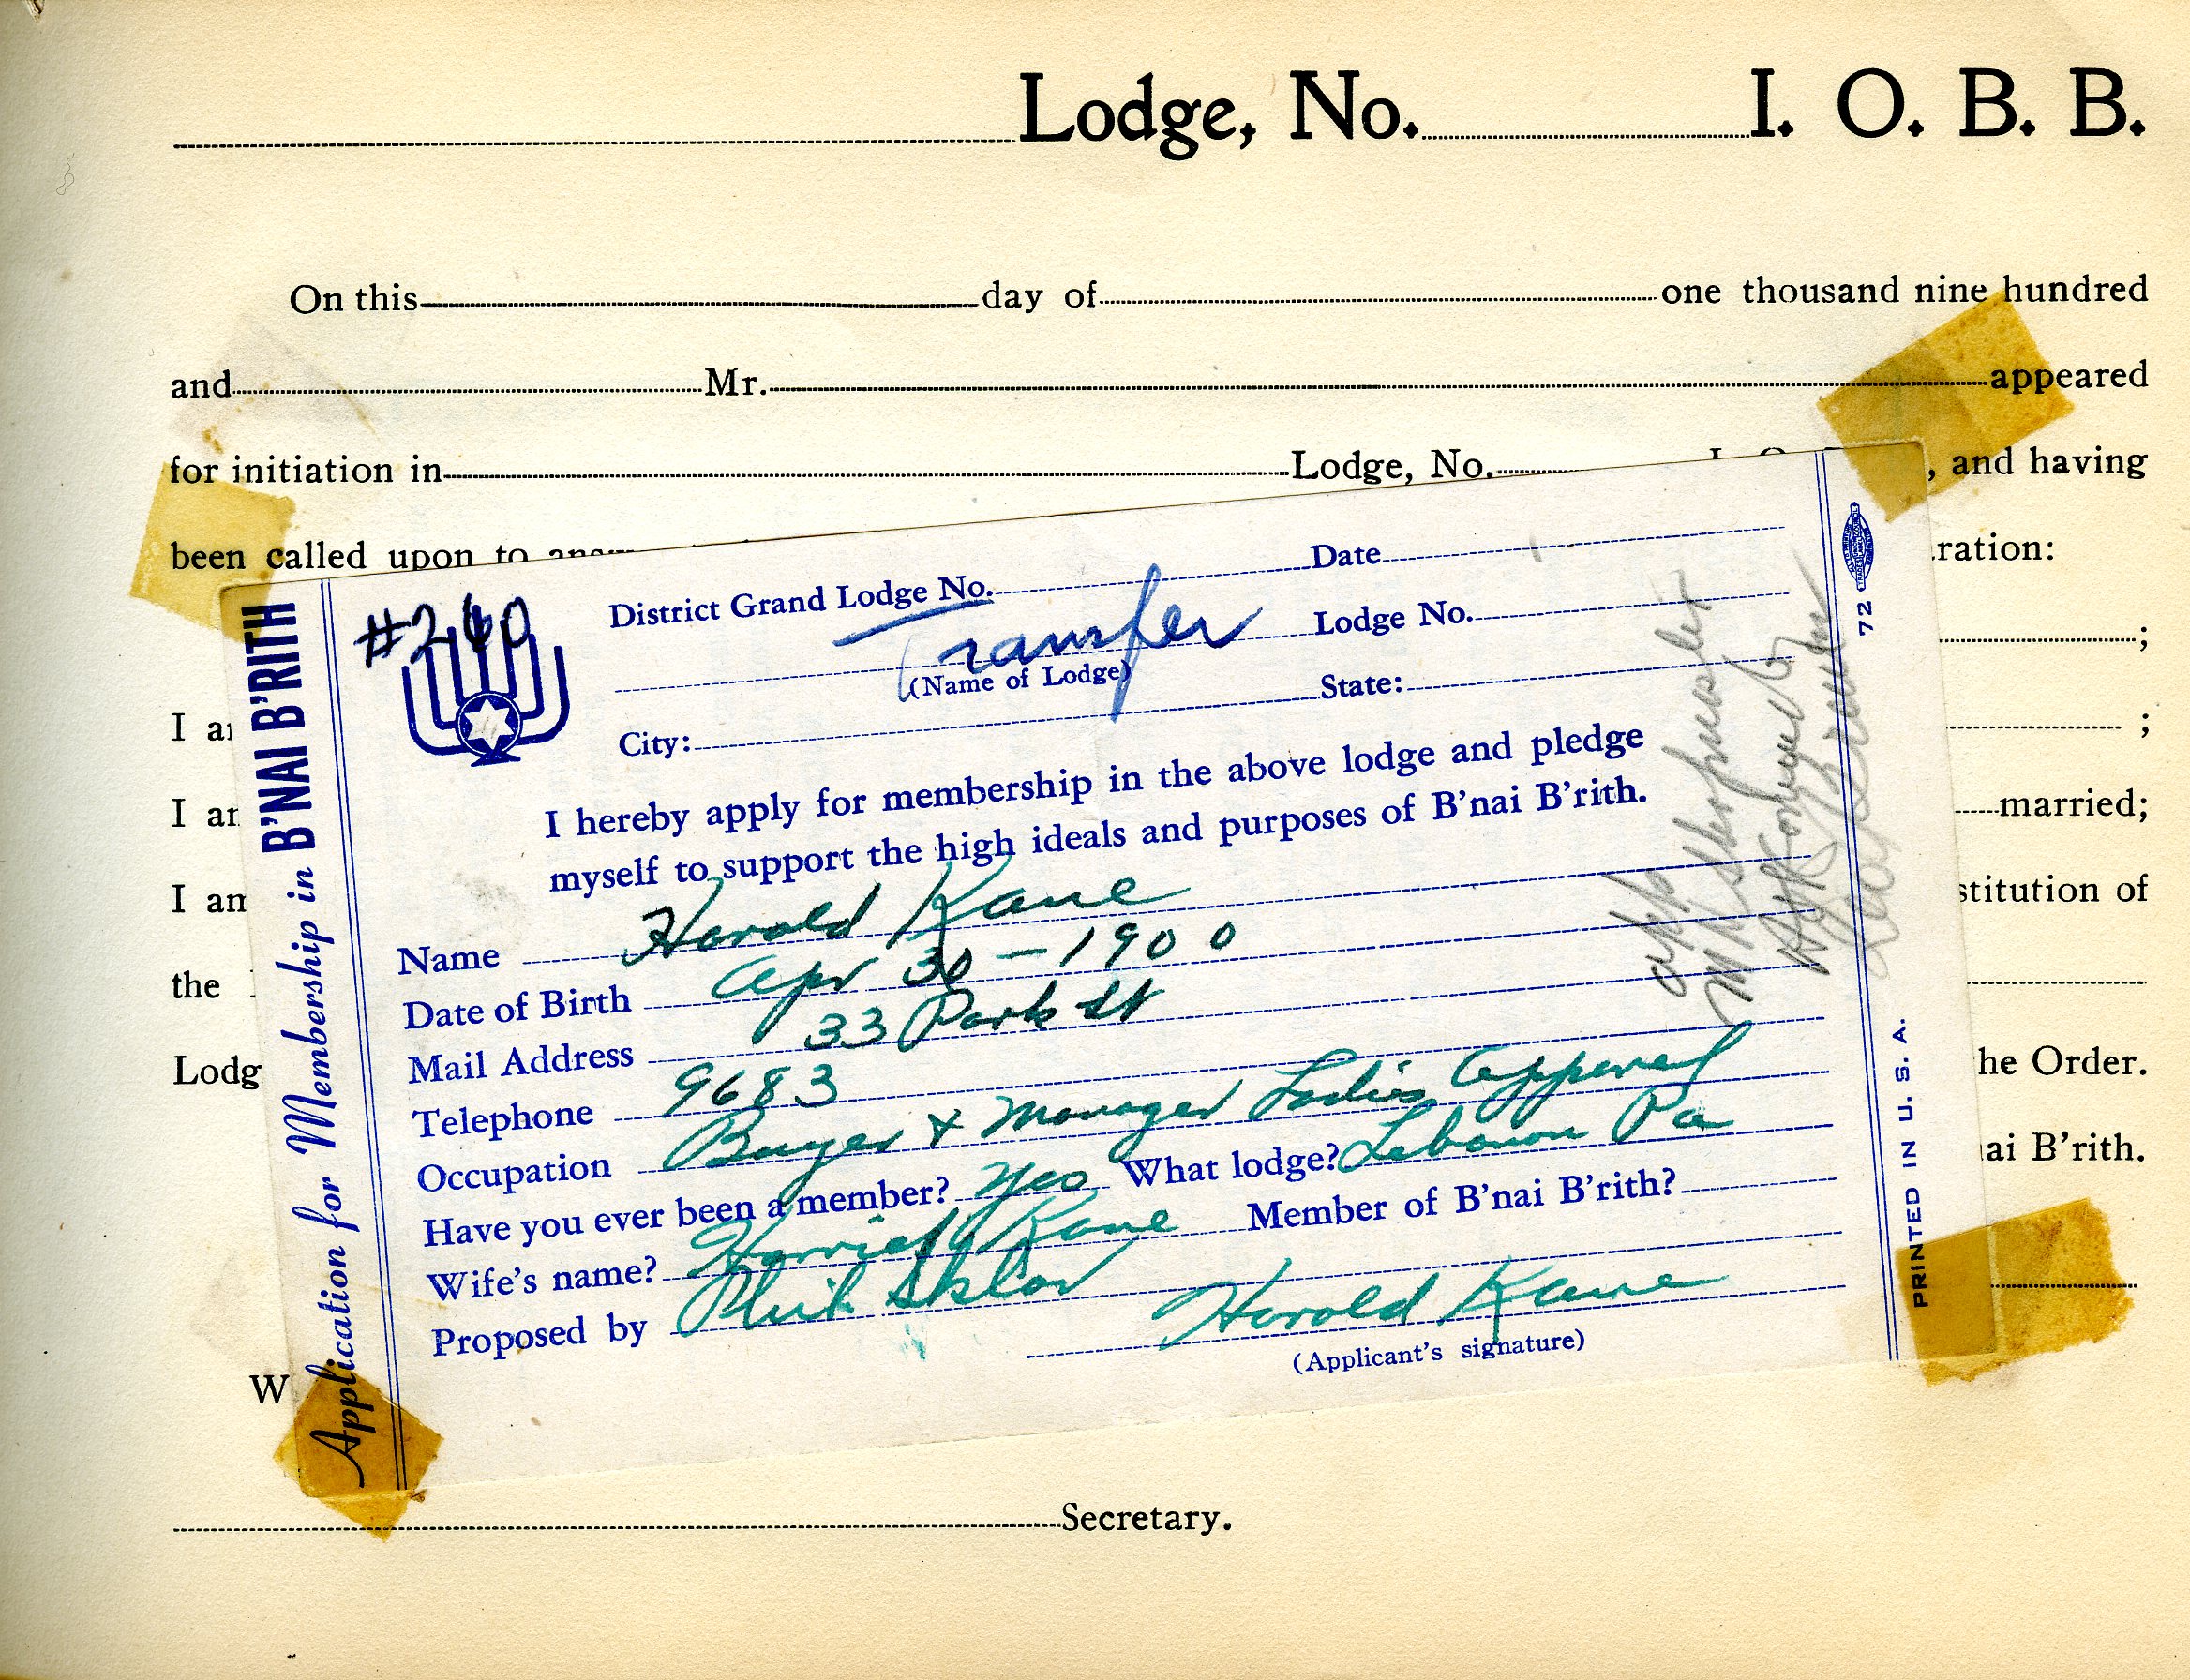 Lodge, No. I. O. B. B.
On this day of one thousand nine hundred
and Mr. appeared
for initiation in Lodge, No. , and having
been called upon to
ration:
;
I
;
I married;
I am stitution of
the
Lodg he Order.
nai B'rith.
W
Secretary.
Application for Membership in B'NAI B'RITH
#260
District Grand Lodge No. Date
Transfer Lodge No.
(Name of Lodge)
City: State:
I hereby apply for membership in the above lodge and pledge
myself to support the high ideals and purposes of B'nai B'rith.
Name Harold Kane
Date of Birth Apr 30 - 1900
Mail Address 33 Park St
Telephone 9683
Occupation Buyer & Manager Ladies Apparel
Have you ever been a member? Yes What lodge? Lebanon Pa
Wife's name? Harriet Kane Member of B'nai B'rith?
Proposed by Phil Sklar
Harold Kane
(Applicant's signature)
72
PRINTED IN U. S. A.